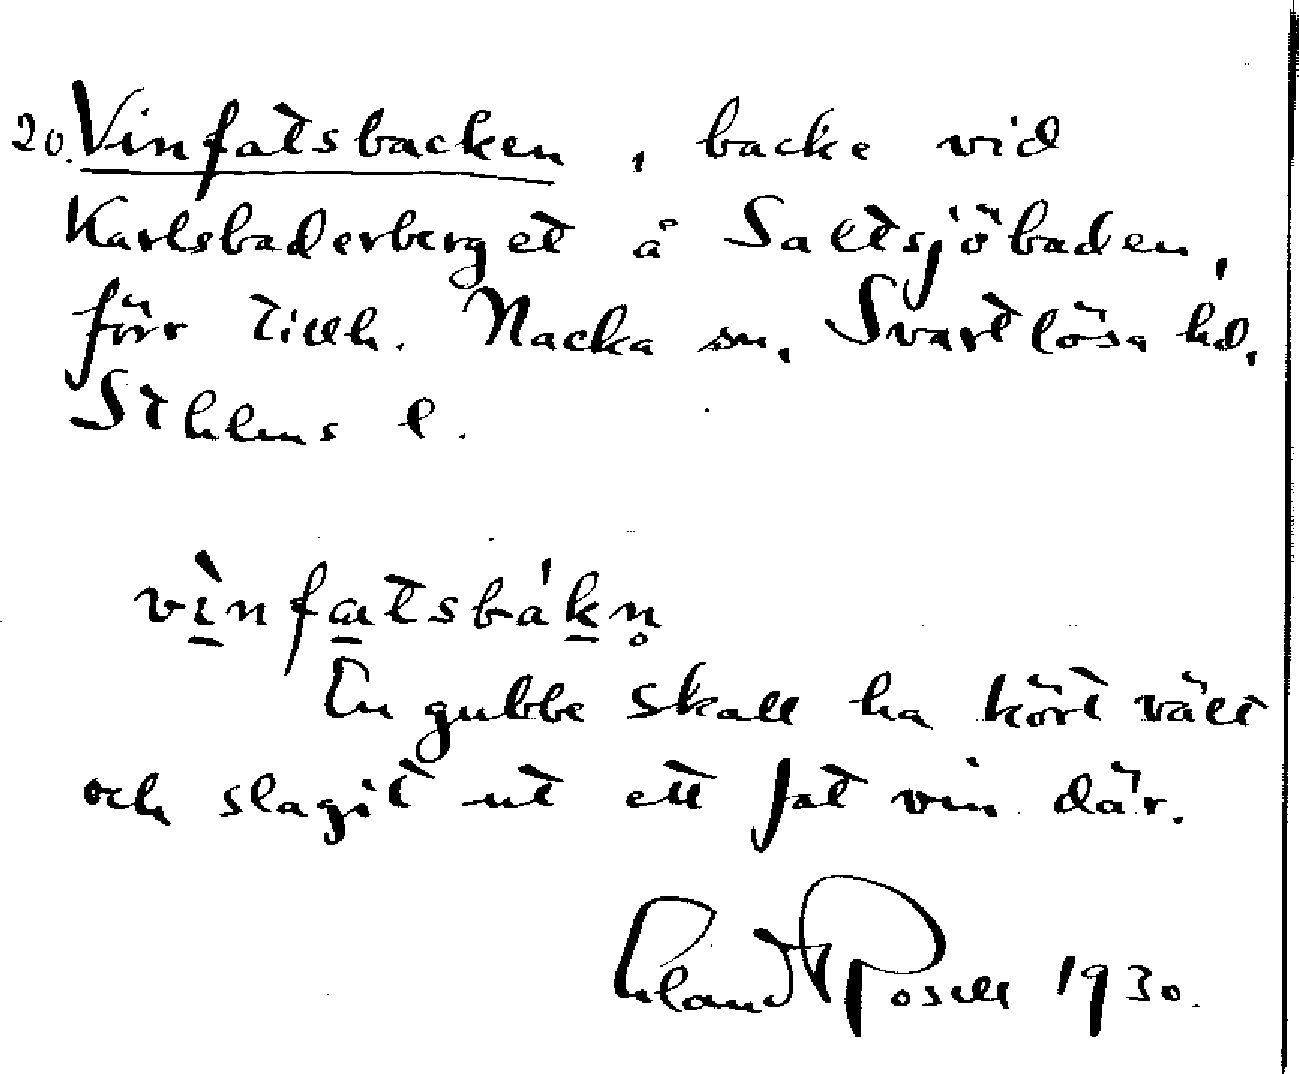 20. Vinfatsbacken, backe vid
Karlsbaderberget å Saltsjöbaden,
förr tillh. Nacka sn, Svartlösa hd,
Sthlms l.
vì̱nfa̱tsbáḵn̥
En gubbe skall ha kört vält
och slagit ut ett fat vin där.
Erland Rosell 1930.